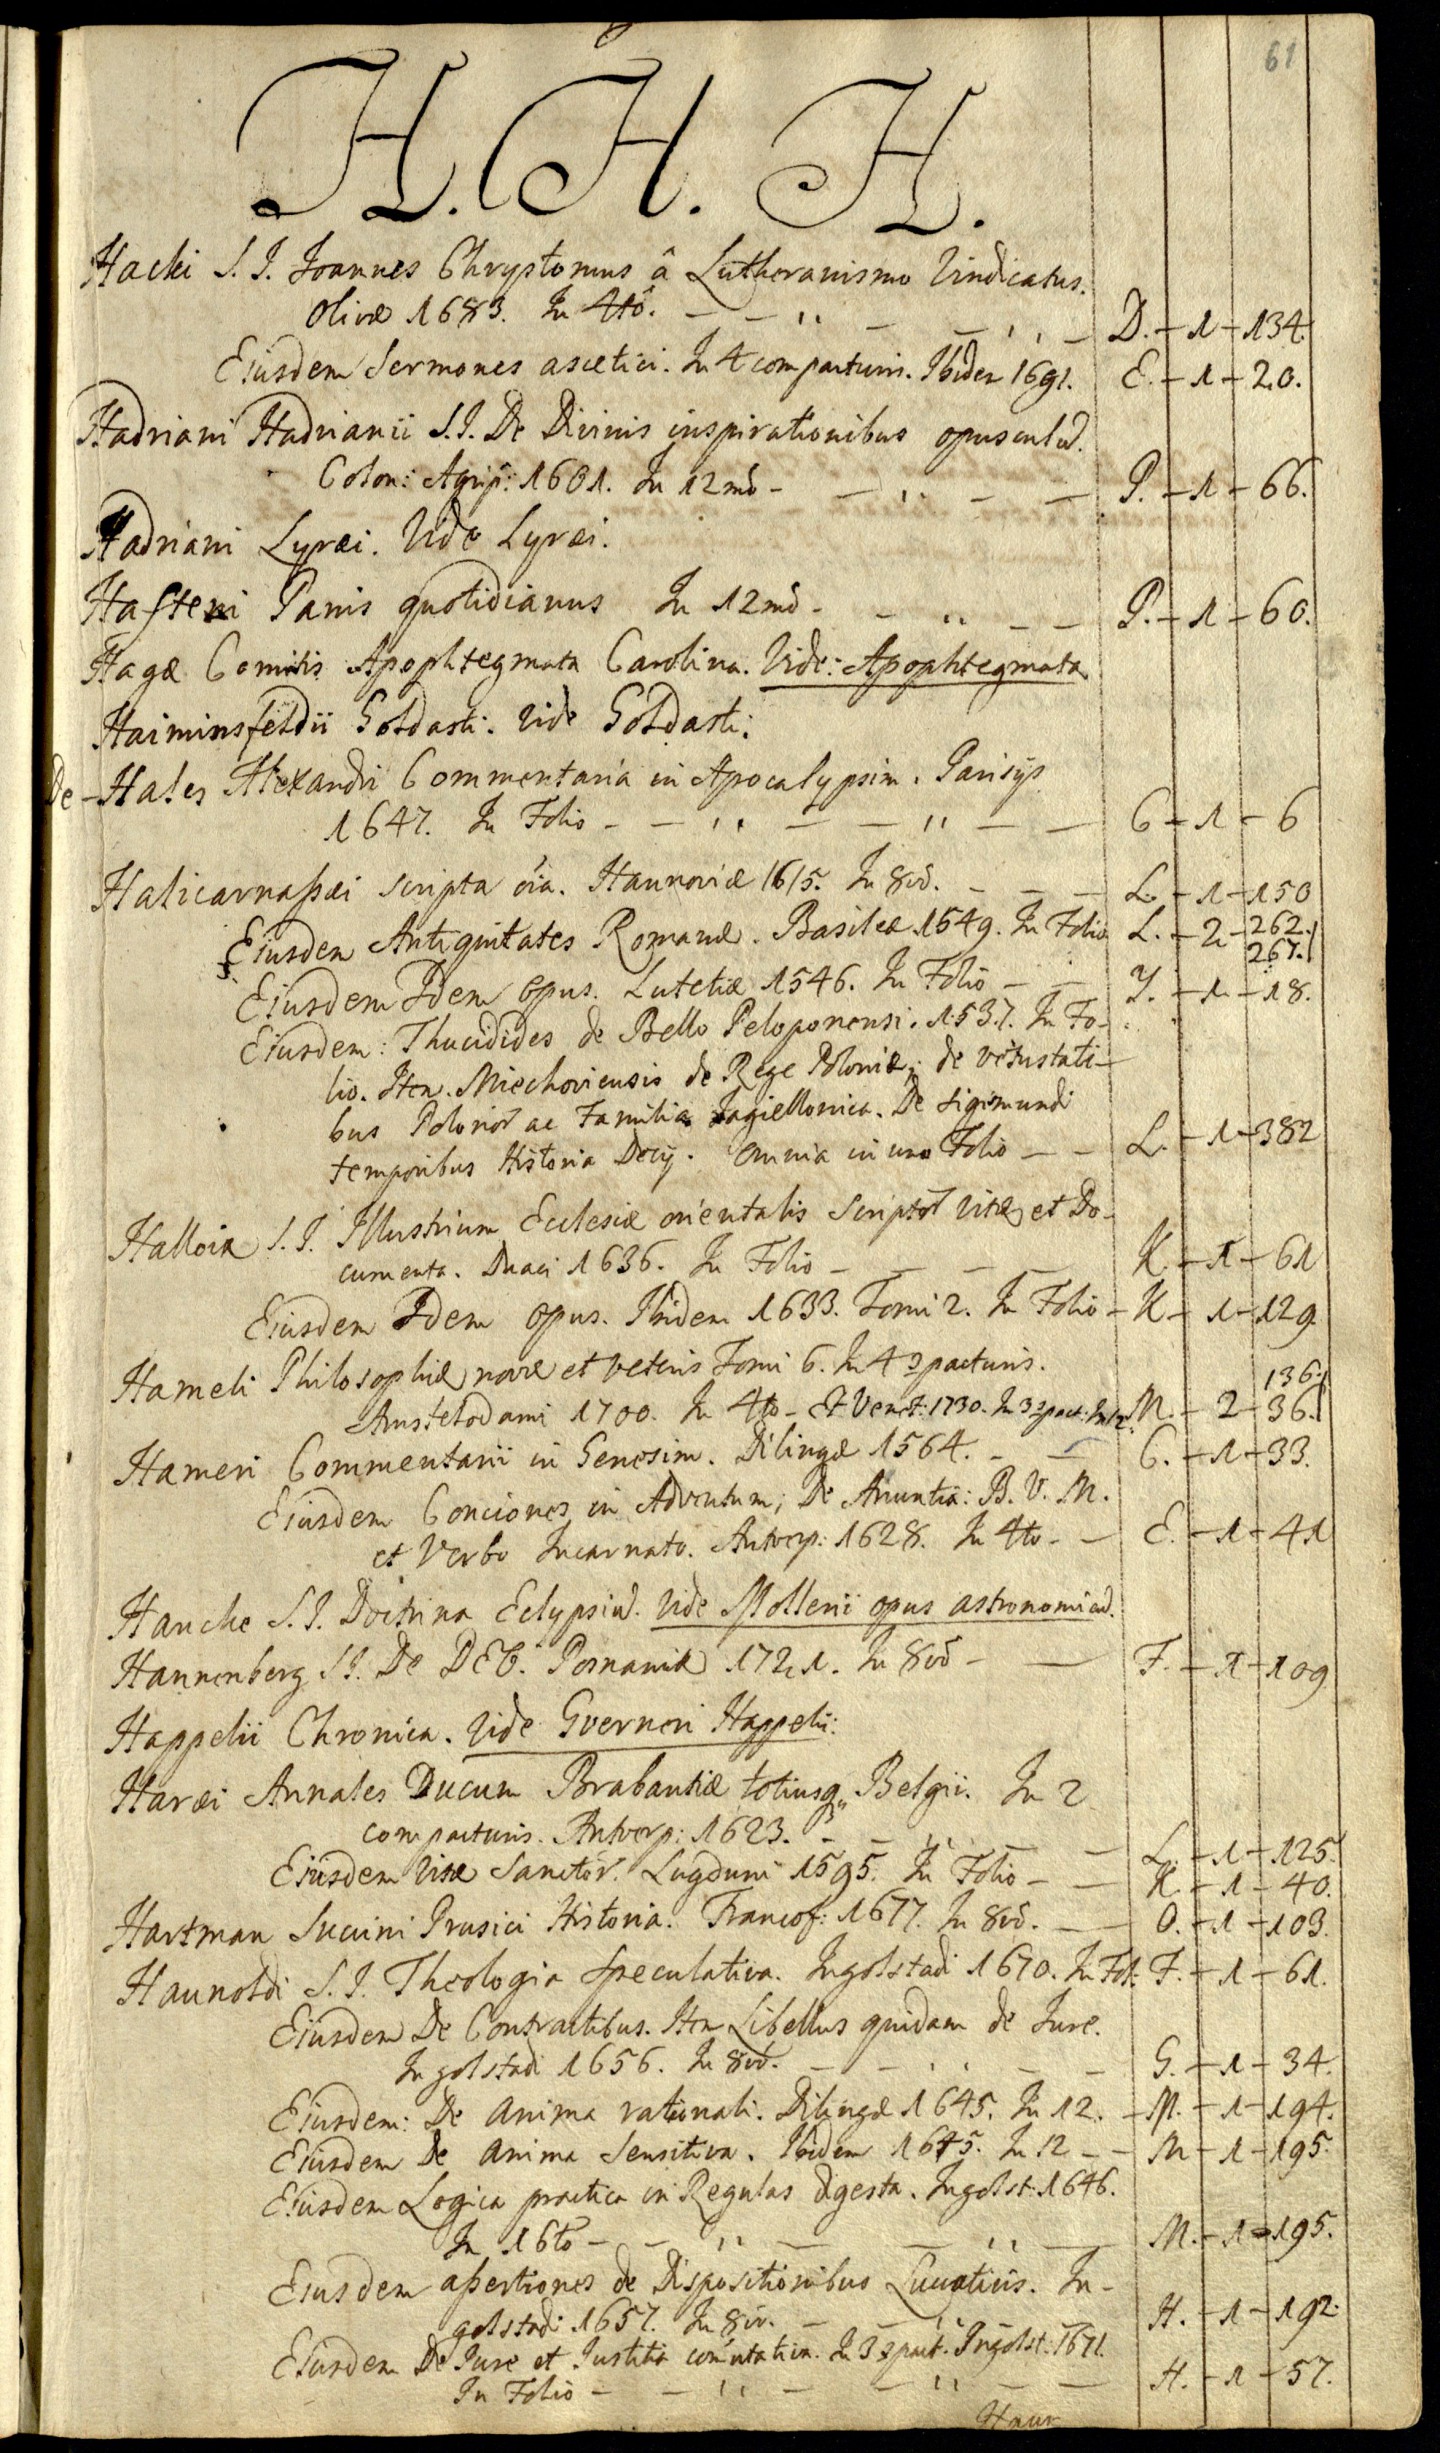 61
H. H. H.
Hacki S. I. Joannes Chrystomus â Lutheranismo Vindicatus.
Olivæ 1683. In 4to. — — ,, — — ,, — D. — 1 — 134.
Eiusdem Sermones ascetici. In 4 compacturis. Ibidem 1691. E. — 1 — 20.
Hadriani Hadrianii S. I. De Divinis inspirationibus opusculũ.
Colon: Agrip: 1601. In 12mo — — ,, — — P. — 1 — 66.
Hadriani Lyræi. Vide Lyræi.
Hafteni Panis quotidianus In 12mo — — ,, — — P. — 1 — 60.
Hagæ Comitis Apophtegmata Carolina. Vide: Apophtegmata
Haiminsfeldii Goldasti. Vide Goldasti.
De — Hales Alexandri Commentaria in Apocalypsim. Parisijs
1647. In Folio — — ,, — — ,, — — C — 1 — 6
Halicarnaßæi scripta oia. Hannoviæ 1615. In 8vo. — — — L. — 1 — 150
Eiusdem Antiquitates Romanæ. Basileæ 1549. In Folio L. — 2 — 262.
267.
Eiusdem Idem opus. Lutetiæ 1546. In Folio — — Y. — 1 — 18.
Eiusdem: Thucidides de Bello Peloponensi. 1537. In Fo-
lio. Item. Miechoviensis de Rege Poloniæ; de vetustati-
bus Polonor ac Familia Jagiellonica. De Sigismundi
temporibus Historia Decij. Omnia in uno Folio — — L. — 1 — 382
Halloix S. I. Illustrium Ecclesiæ orientalis Scriptor Vitæ et Do-
cumenta. Duaci 1636. In Folio — — — — K — 1 — 61
Eiusdem Idem opus. Ibidem 1633. Tomi 2. In Folio — K — 1 — 129
Hameli Philosophiæ novæ et veteris Tomi 6. In 4 3pacturis. 136.
Amstelodami 1700. In 4to — Et Venet: 1730. In 3 3pact: In 12. M. — 2 — 36.
Hameri Commentarii in Genesim. Dilingæ 1564. — — C. — 1 — 33.
Eiusdem Conciones in Adventum; De Anuntia: B. V. M.
et Verbo Incarnato. Antverp: 1628. In 4to — — E. — 1 — 41
Hancke S. I. Doctrina Eclypsiũ. Vide Mollerii opus astronomicũ.
Hannenberg S I. De DEO. Posnaniæ 1721. In 8vo — — F. — 1 — 109
Happelii Chronica. Vide Gverneri Happelii:
Haræi Annales Ducum Brabantiæ totiusq, Belgii. In 2
compacturis. Antverp: 1623. — — ,, — — L. — 1 — 125.
Eiusdem Vitæ Sanctor. Lugduni 1595. In Folio — — K. — 1 — 40.
Hartman Succini Prusici Historia. Francof: 1677. In 8vo. — O. — 1 — 103.
Haunoldi S. I. Theologia Speculativa. Ingolstadi 1670. In Fol: F. — 1 — 61.
Eiusdem De Contractibus. Item Libellus quidam de Jure.
Ingolstadi 1656. In 8vo. — — ,, — — G. — 1 — 34.
Eiusdem: De Anima rationali. Dilingæ 1645. In 12. — M. — 1 — 194.
Eiusdem De Anima Sensitiva. Ibidem 1645. In 12 — — M — 1 — 195.
Eiusdem Logica practica in Regulas digesta. Ingolst: 1646.
In 16to — — ,, — — ,, — M. — 1 — 195.
Eiusdem aßertiones de Dispositionibus. In-
golstadi 1657. In 8vo. — — ,, — H. — 1 — 192.
Eiusdem De Jure et Justitia com̃utativa. In 3 3pact. Ingolst: 1671.
In Folio — — ,, — — ,, — — H. — 1 — 57.
Haun